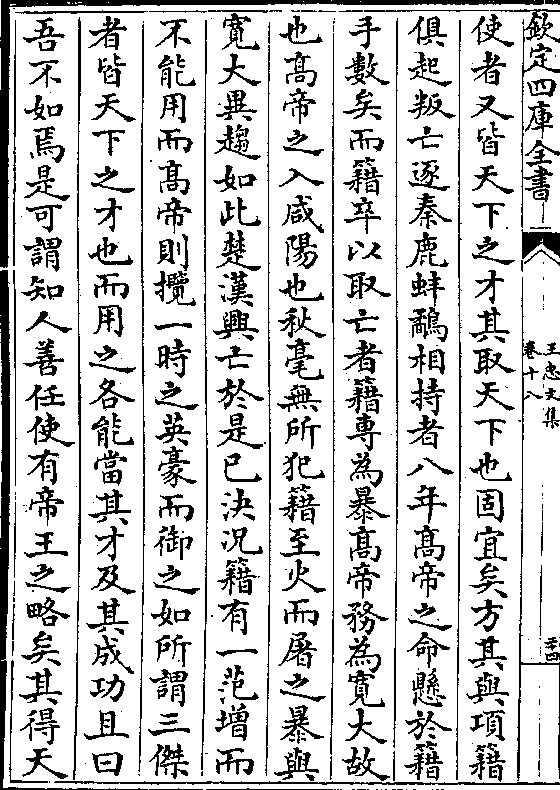 欽定四庫全書
王忠文集
卷十八
二十四
使者又皆天下之才其取天下也固宜矣方其與項籍
俱起叛亡逐秦鹿蚌鷸相持者八年髙帝之命懸於籍
手數矣而籍卒以取亡者籍專為暴髙帝務為寛大故
也髙帝之入咸陽也秋毫無所犯籍至火而屠之暴與
寛大異趨如此楚漢興亡於是已決況籍有一范增而
不能用而髙帝則攬一時之英豪而御之如所謂三傑
者皆天下之才也而用之各能當其才及其成功且曰
吾不如焉是可謂知人善任使有帝王之略矣其得天